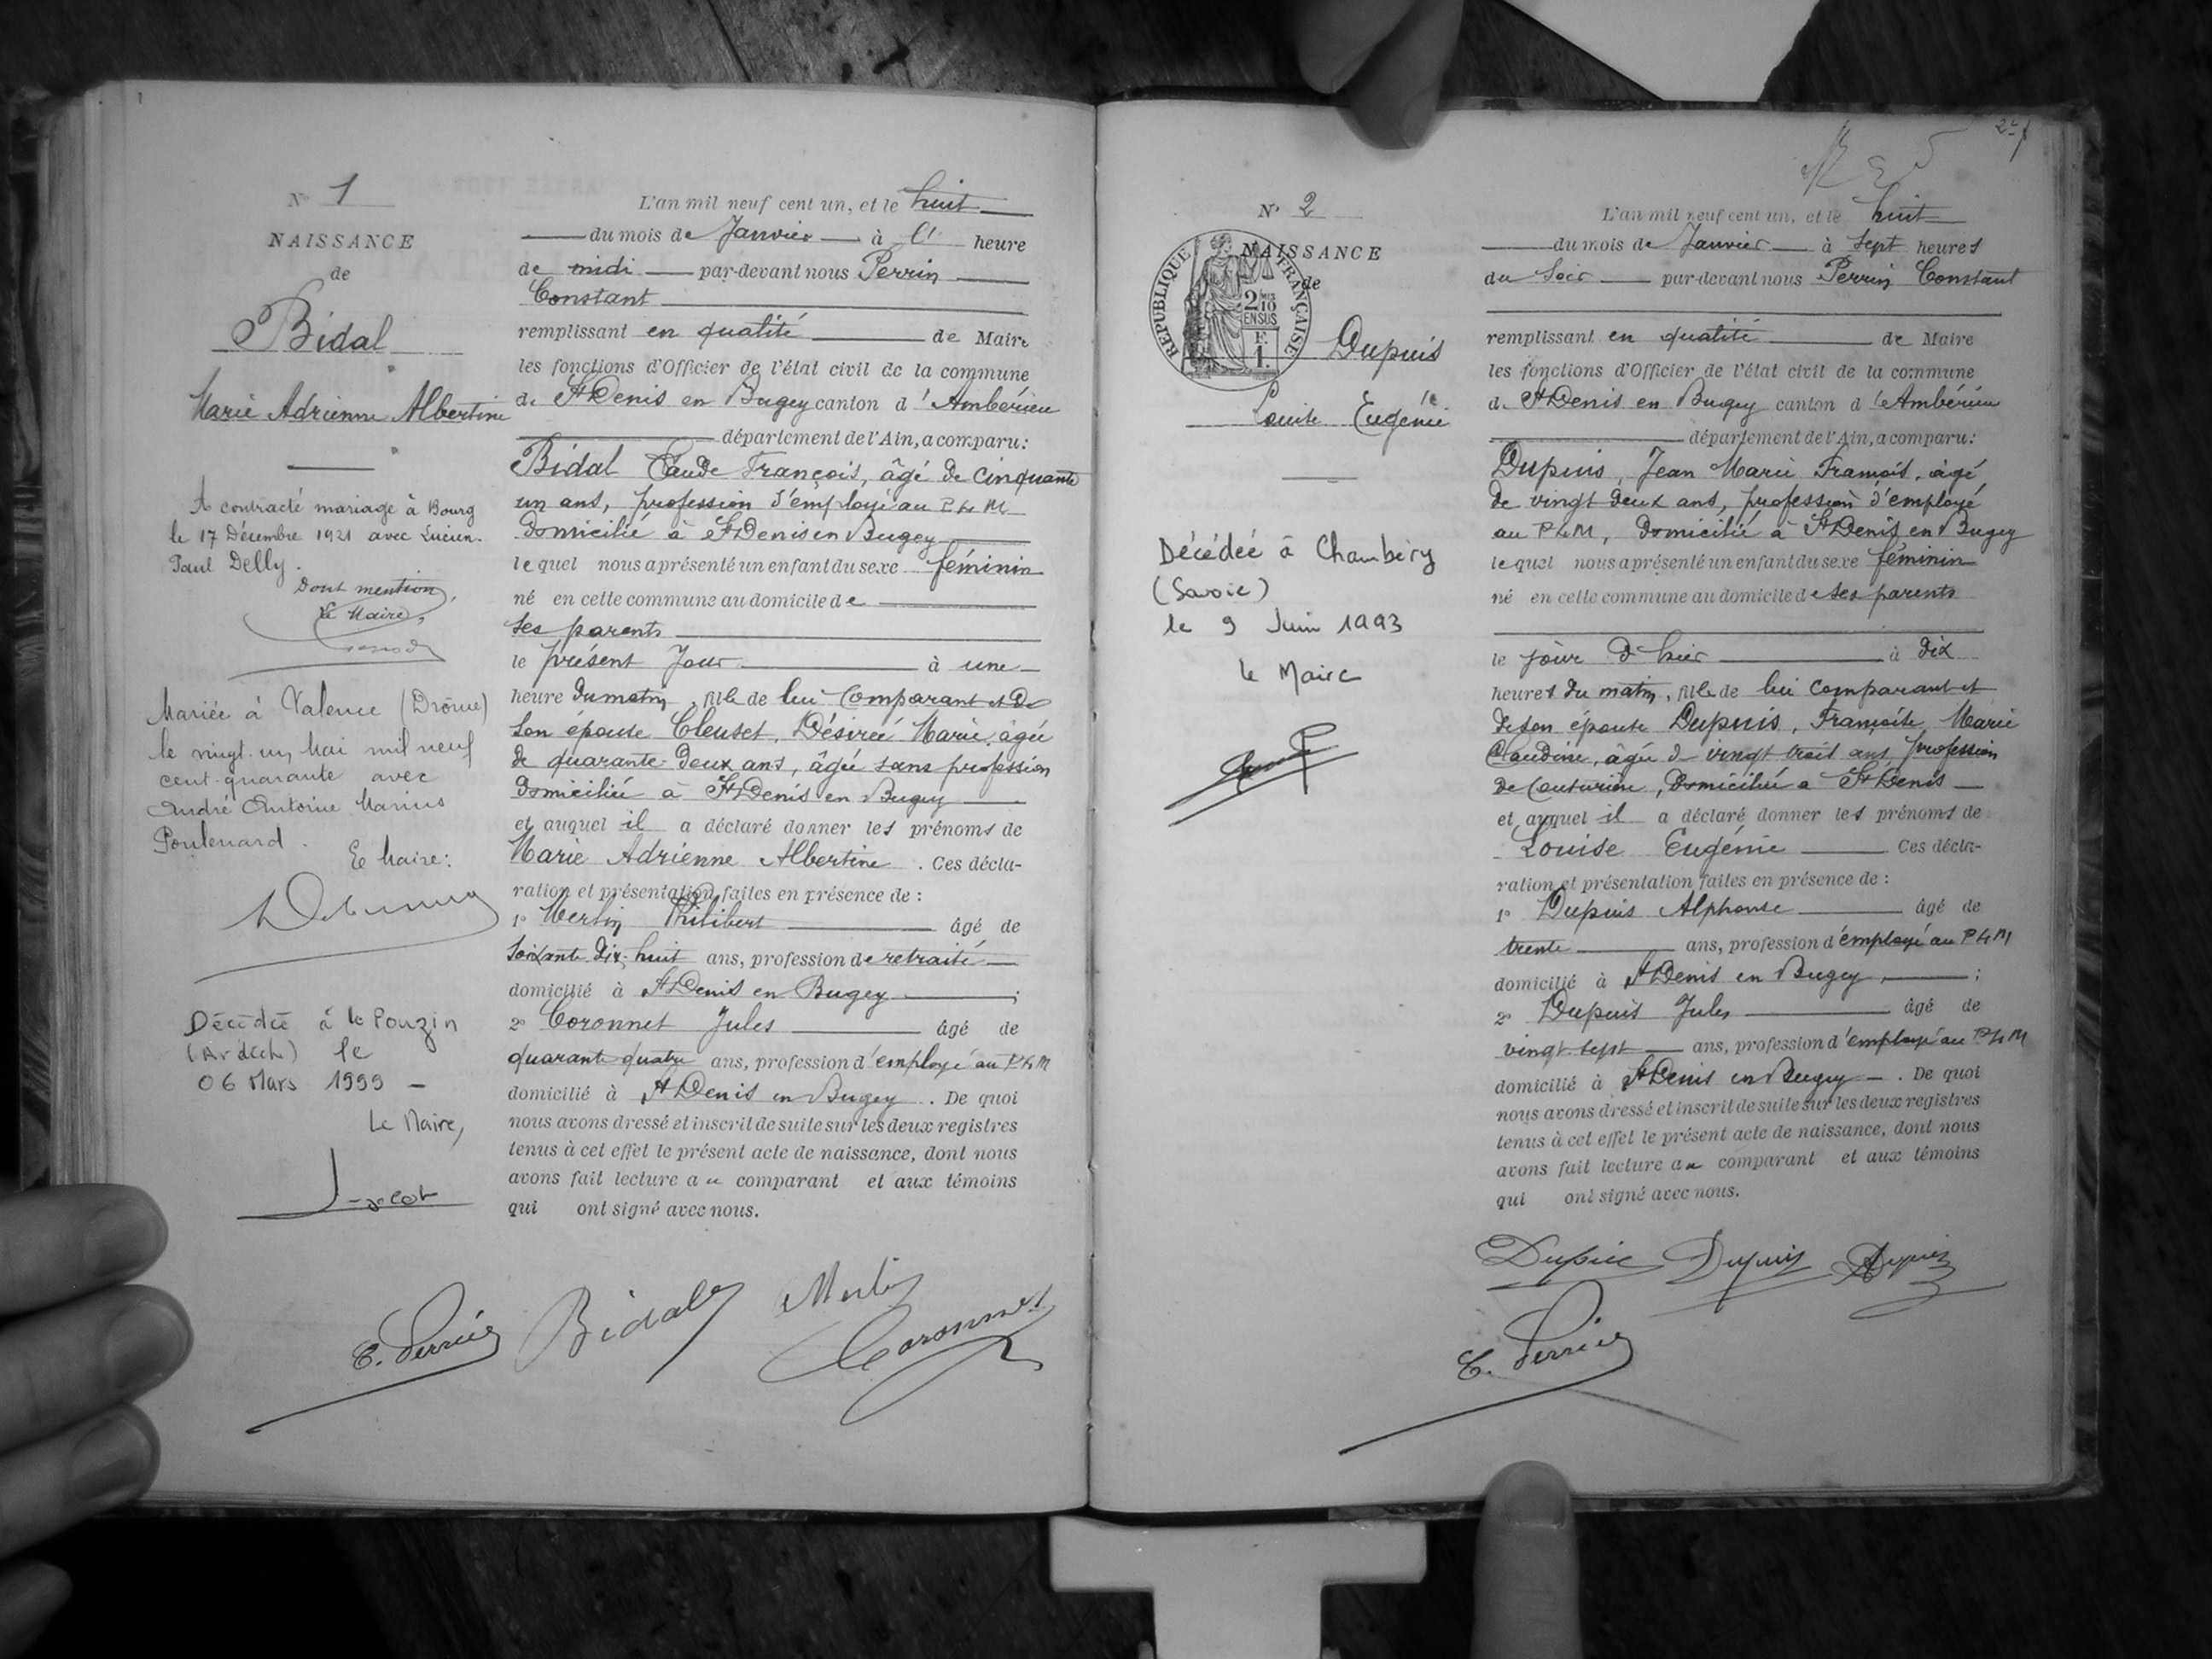 N° 1
NAISSANCE
de
Bidal
Marie Adrienne Albertine
A contracté mariage à Bourg
le 17 Décembre 1921 avec Lucien
Paul Delly.
Dont mention,
Le Maire,
Mariée à Valence (Drôme)
le vingt-un Mai mil neuf
cent-quarante avec
André Antoine Marius
Poulenard.
Le Maire:
Décédée à le Pouzin
(Ardèch) le
06 Mars 1999 -
Le Maire,
L'an mil neuf cent un, et le huit
du mois de Janvier à l' heure
de midi par-devant nous Perrin
Constant
remplissant en qualité de Maire
les fonctions d'Officier de l'état civil de la commune
de St Denis en Bugey canton d'Ambérieu
département de l'Ain, a comparu:
Bidal Claude François, âgé de cinquante
un ans, profession d'employé au PLM
domicilié à St Denis en Bugey
lequel nous a présenté un enfant du sexe féminin
né en cette commune au domicile de
ses parents
le présent jour à une
heure du matin, fille de lui comparant et de
son épouse Cleuset, Désirée Marie, âgée
de quarante-deux ans, âgée sans profession
domiciliée à St Denis en Bugey
et auquel il a déclaré donner les prénoms de
Marie Adrienne Albertine. Ces décla-
ration et présentation faites en présence de :
1° Merlin Philibert âgé de
soixante dix-huit ans, profession de retraité
domicilié à St Denis en Bugey ;
2° Coronnet Jules âgé de
quarante quatre ans, profession d'employé au PLM
domicilié à St Denis en Bugey. De quoi
nous avons dressé et inscrit de suite sur les deux registres
tenus à cet effet le présent acte de naissance, dont nous
avons fait lecture au comparant et aux témoins
qui ont signé avec nous.
C. Perrin Bidal Merlin
Coronnet
2
N° 2
NAISSANCE
de
RÉPUBLIQUE FRANÇAISE
2/10 EN SUS
F. 1.
Dupuis
Louise Eugénie
Décédée à Chambéry
(Savoie)
le 9 Juin 1993
Le Maire
L'an mil neuf cent un, et le huit
du mois de Janvier à sept heures
du soir par-devant nous Perrin Constant
remplissant en qualité de Maire
les fonctions d'Officier de l'état civil de la commune
d. St Denis en Bugey canton d'Ambérieu
département de l'Ain, a comparu:
Dupuis, Jean Marie François, âgé
de vingt deux ans, profession d'employé
au PLM, domicilié à St Denis en Bugey
lequel nous a présenté un enfant du sexe féminin
né en cette commune au domicile de ses parents
le jour d'hier à dix
heures du matin, fille de lui comparant et
de son épouse Dupuis, Françoise Marie
Claudine, âgée de vingt trois ans, profession
de couturière, domiciliée à St Denis
et auquel il a déclaré donner les prénoms de
Louise Eugénie Ces décla-
ration et présentation faites en présence de :
1° Dupuis Alphonse âgé de
trente ans, profession d'employé au PLM
domicilié à St Denis en Bugey, ;
2° Dupuis Jules âgé de
vingt-sept ans, profession d'employé au PLM
domicilié à St Denis en Bugey. De quoi
nous avons dressé et inscrit de suite sur les deux registres
tenus à cet effet le présent acte de naissance, dont nous
avons fait lecture au comparant et aux témoins
qui ont signé avec nous.
Dupuis Dupuis Dupuis
C. Perrin